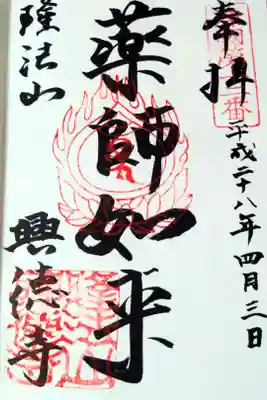 奉拝
平成二十八年四月三日
薬師如来
隆法山
興徳寺